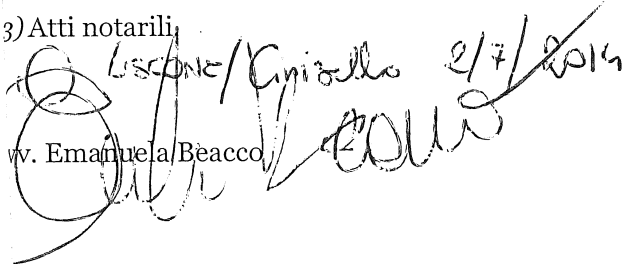 3) Atti notarili
Liscone/Cinisello 2/7/2014
vv. Emanuela Beacco